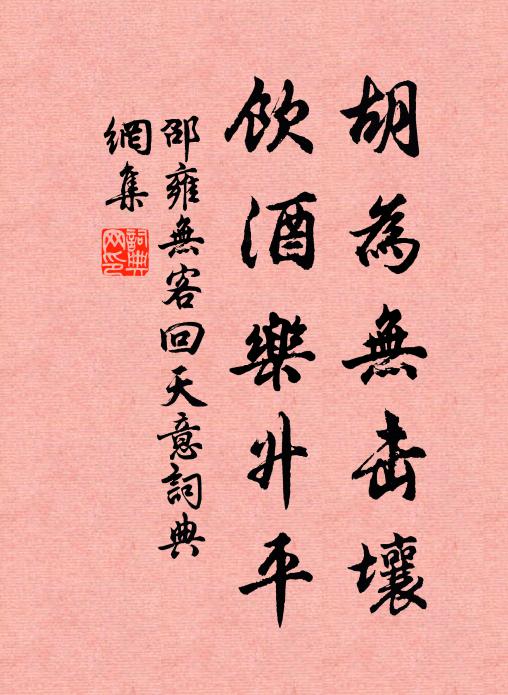 胡為無击壤
飲酒樂升平
邵雍無客回天意詞典
網集
詞典
网印